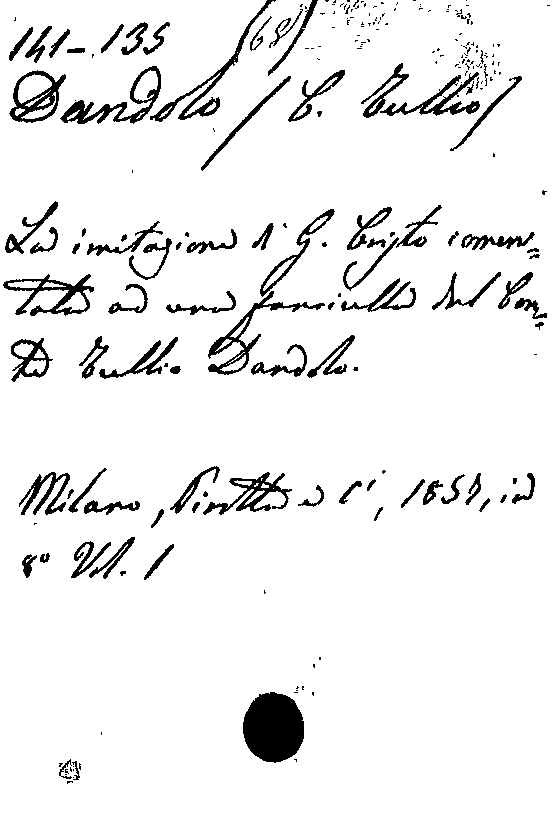 141-135 (68)
Dandolo / C. Tullio /
La imitazione di G. Cristo comen=
tata ad una fanciulla del Con=
te Tullio Dandolo.
Milano, Pirotta e Cⁱ, 1857, in
8° Vol. 1